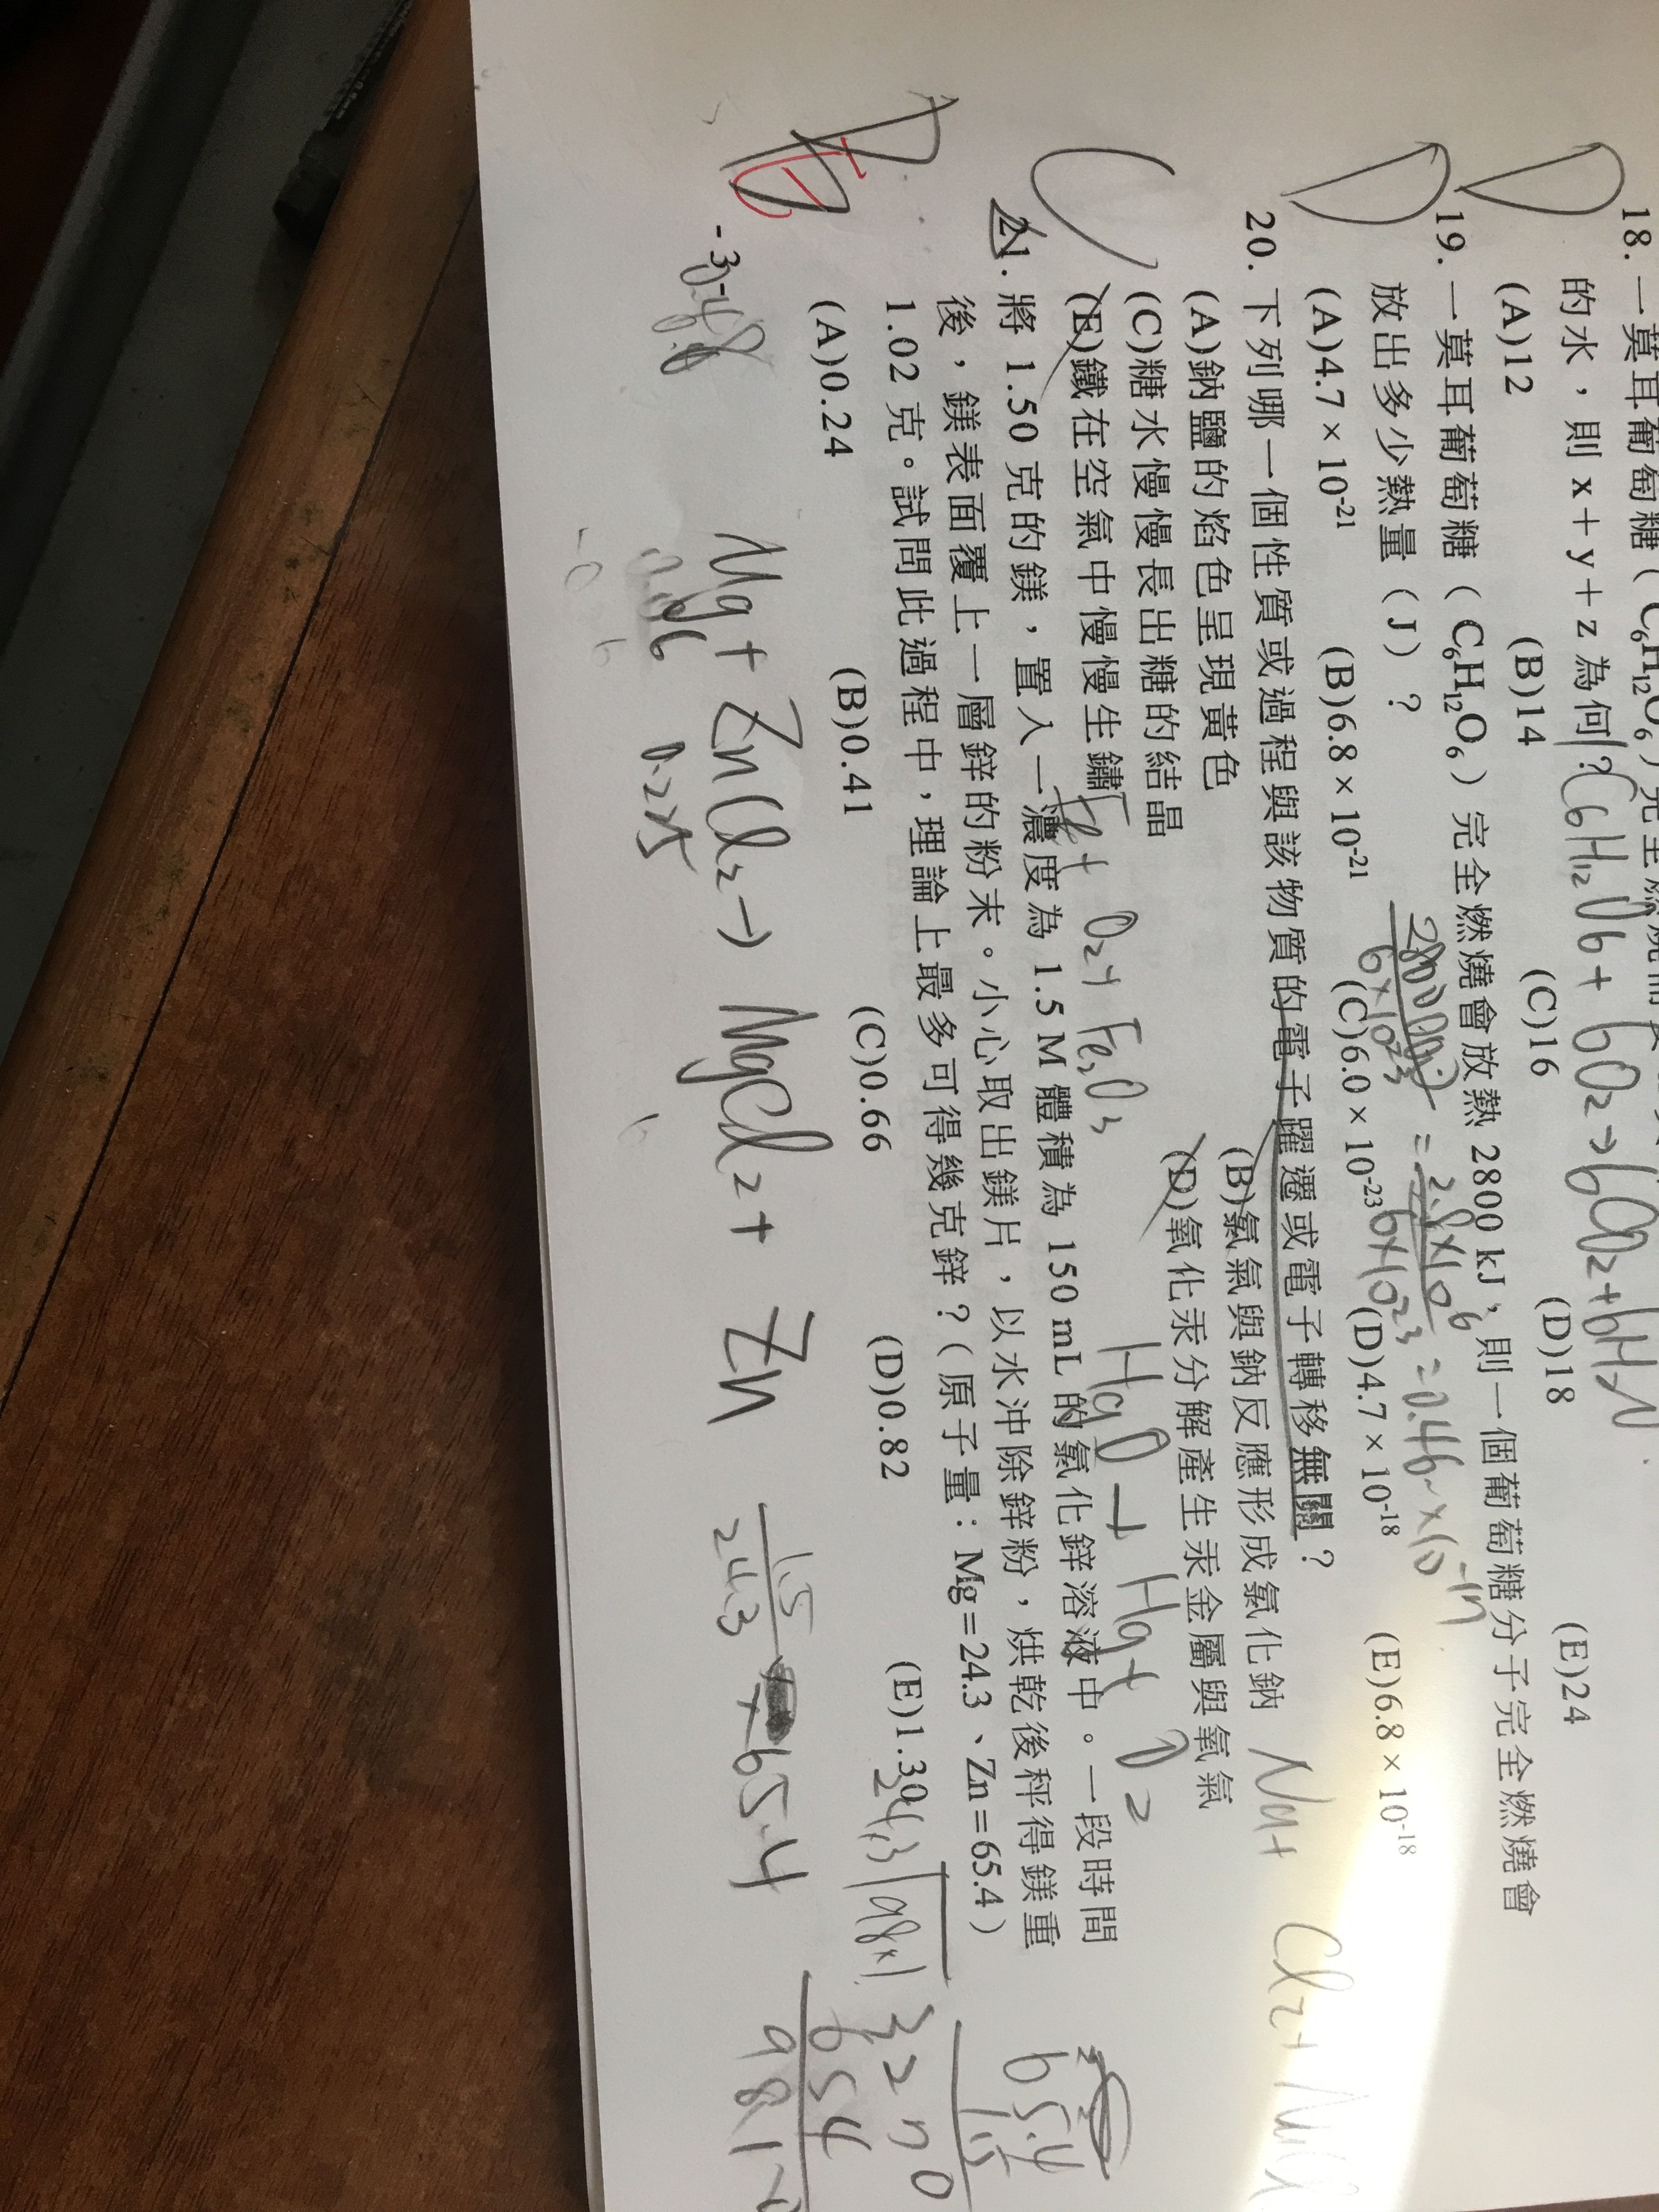 18. 一莫耳葡萄糖（C₆H₁₂O₆）完全燃燒需要
的水，則 x + y + z 為何? C6H12O6 + 6O2 → 6CO2 + 6H2O
(A)12 (B)14 (C)16 (D)18 (E)24
D
19. 一莫耳葡萄糖（C₆H₁₂O₆）完全燃燒會放熱 2800 kJ，則一個葡萄糖分子完全燃燒會
放出多少熱量（J）？
D
(A)4.7 × 10⁻²¹ (B)6.8 × 10⁻²¹ (C)6.0 × 10⁻²³ (D)4.7 × 10⁻¹⁸ (E)6.8 × 10⁻¹⁸
6×10²³ = 2.8×10⁶ 6×10²³
20. 下列哪一個性質或過程與該物質的電子躍遷或電子轉移無關？
C
(A)鈉鹽的焰色呈現黃色 (B)氯氣與鈉反應形成氯化鈉 Na+ Cl2→
(C)糖水慢慢長出糖的結晶 (D)氧化汞分解產生汞金屬與氧氣
(E)鐵在空氣中慢慢生鏽 Fe+ O2→ Fe2O3 HgO → Hg+ O2
21. 將 1.50 克的鎂，置入一濃度為 1.5 M 體積為 150 mL 的氯化鋅溶液中。一段時間
後，鎂表面覆上一層鋅的粉末。小心取出鎂片，以水沖除鋅粉，烘乾後秤得鎂重
1.02 克。試問此過程中，理論上最多可得幾克鋅？（原子量：Mg=24.3、Zn=65.4）
E
(A)0.24 (B)0.41 (C)0.66 (D)0.82 (E)1.30
Mg + ZnCl2 → MgCl2 + Zn 1.5 24.3 × 65.4
0.06 0.225
24.3 981
65.4
1.5
3270
654
981
-3-
0.48